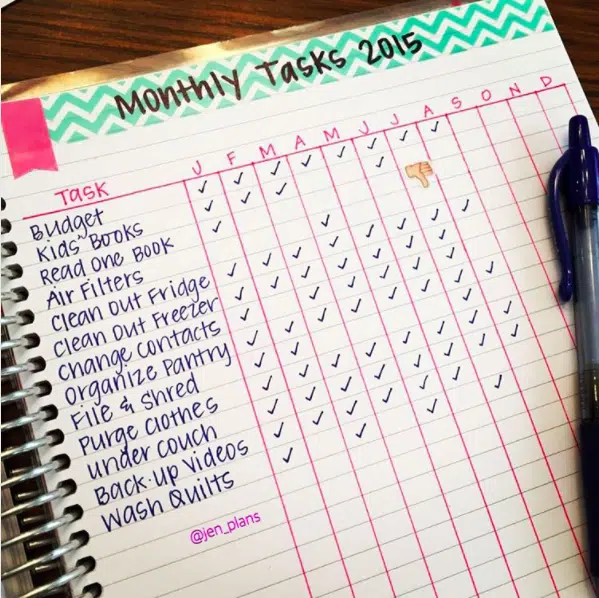 Monthly Tasks 2015
Task J F M A M J J A S O N D
Budget
Kids' Books
Read One Book
Air Filters
Clean Out Fridge
Clean Out Freezer
Change Contacts
Organize Pantry
File & Shred
Purge Clothes
Under Couch
Back-Up Videos
Wash Quilts
@jen_plans